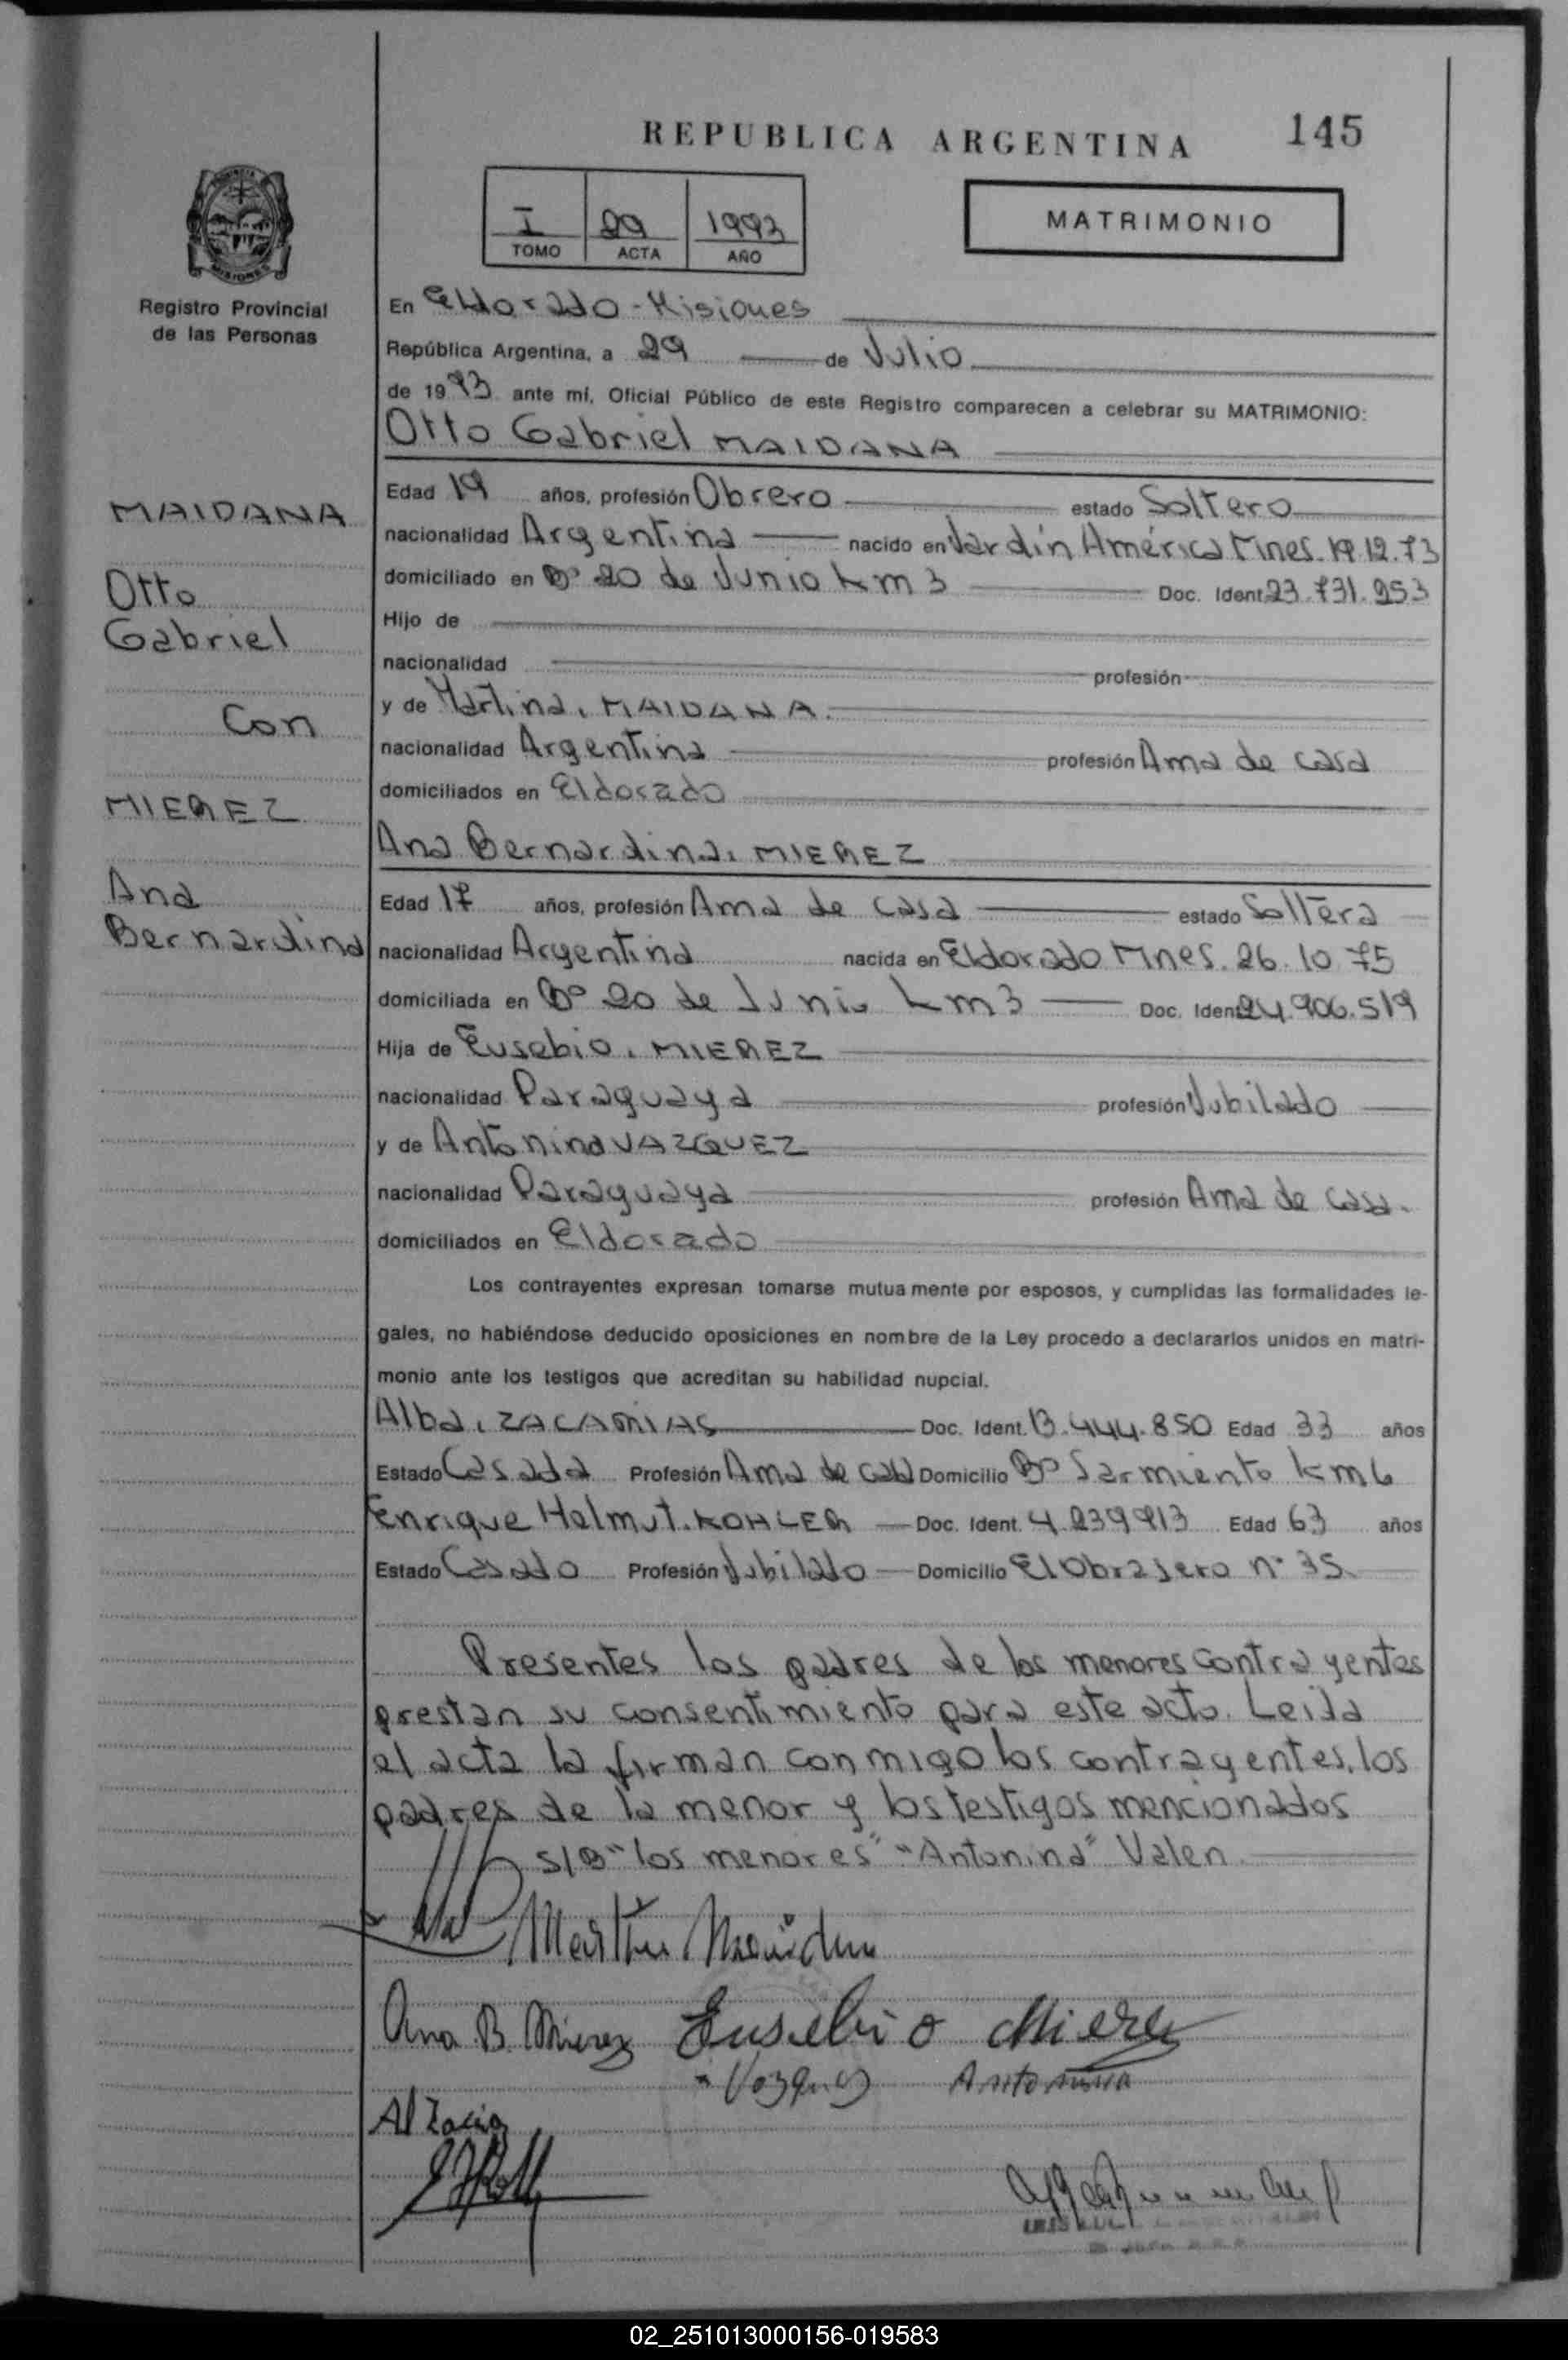 REPUBLICA ARGENTINA 145
I 29 1993
TOMO ACTA AÑO
MATRIMONIO
Registro Provincial
de las Personas
En Eldorado - Misiones
República Argentina, a 29 de Julio
de 1993 ante mí, Oficial Público de este Registro comparecen a celebrar su MATRIMONIO:
Otto Gabriel MAIDANA
Edad 19 años, profesión Obrero estado Soltero
nacionalidad Argentina nacido en Jardín América Mnes. 19.12.73
domiciliado en Bº 20 de Junio km 3 Doc. Ident. 23.731.253
Hijo de
nacionalidad profesión
y de Martina. MAIDANA.
nacionalidad Argentina profesión Ama de casa
domiciliados en Eldorado
Ana Bernardina. MIEREZ
Edad 17 años, profesión Ama de casa estado Soltera
nacionalidad Argentina nacida en Eldorado Mnes. 26.10.75
domiciliada en Bº 20 de Junio km3 Doc. Ident. 24.906.519
Hija de Eusebio. MIEREZ
nacionalidad Paraguaya profesión Jubilado
y de Antonina VAZQUEZ
nacionalidad Paraguaya profesión Ama de casa.
domiciliados en Eldorado
Los contrayentes expresan tomarse mutuamente por esposos, y cumplidas las formalidades le-
gales, no habiéndose deducido oposiciones en nombre de la Ley procedo a declararlos unidos en matri-
monio ante los testigos que acreditan su habilidad nupcial.
Alba. ZACARIAS Doc. Ident. 13.444.850 Edad 33 años
Estado Casada Profesión Ama de casa Domicilio Bº Sarmiento km6
Enrique Helmut. KOHLER Doc. Ident. 4.239913 Edad 63 años
Estado Casado Profesión Jubilado Domicilio El Obrajero nº 35
Presentes los padres de los menores contrayentes
prestan su consentimiento para este acto. Leida
el acta la firman conmigo los contrayentes, los
padres de la menor y los testigos mencionados
S/B "los menores" "Antonina" Valen
Ana B. Mierez Eusebio Mierez
Vazquez Antonina
MAIDANA
Otto
Gabriel
Con
MIEREZ
Ana
Bernardina
02_251013000156-019583